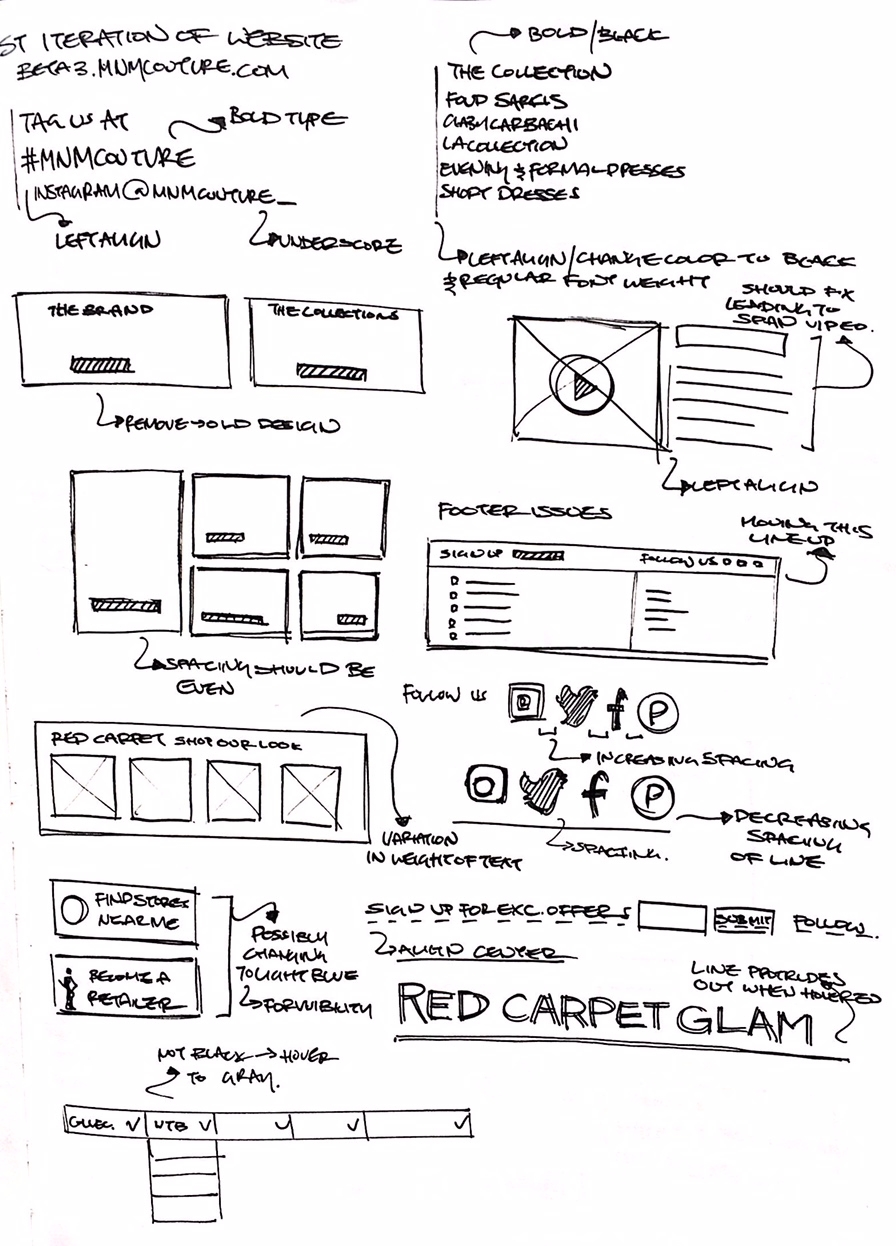 ST ITERATION OF WEBSITE
BETA3.MNMCOUTURE.COM
TAG US AT
BOLD TYPE
#MNMCOUTURE
INSTAGRAM@MNMCOUTURE_
LEFT ALIGN
UNDERSCORE
BOLD/BLACK
THE COLLECTION
FOUD SARCIS
LA COLLECTION
EVENING & FORMAL DRESSES
SHORT DRESSES
LEFT ALIGN/CHANGE COLOR TO BLACK
& REGULAR FONT WEIGHT
THE BRAND
THE COLLECTIONS
REMOVE → OLD DESIGN
SHOULD FIX
LEADING TO
SPAN VIDEO.
LEFT ALIGN
SPACING SHOULD BE
EVEN
FOOTER ISSUES
MOVING THIS
LINE UP
SIGN UP
FOLLOW US
FOLLOW US
P
INCREASING SPACING
P
SPACING.
DECREASING
SPACING
OF LINE
RED CARPET SHOP OUR LOOK
VARIATION
IN WEIGHT OF TEXT
FIND STORES
NEAR ME
BECOME A
RETAILER
POSSIBLY
CHANGING
TO LIGHT BLUE
FOR VISIBILITY
SIGN UP FOR EXC. OFFERS
SUBMIT
FOLLOW.
ALIGN CENTER
LINE PROTRUDES
OUT WHEN HOVERED
RED CARPET GLAM
NOT BLACK → HOVER
TO GRAY.
COLLEC.
WTB